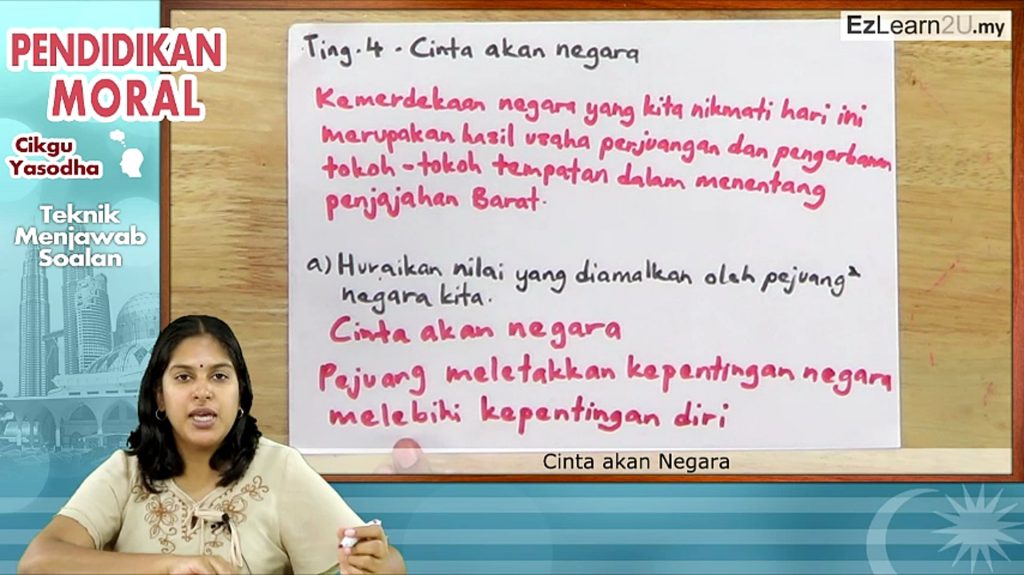 PENDIDIKAN
MORAL
Cikgu
Yasodha
Teknik
Menjawab
Soalan
EzLearn2U.my
Ting.4 - Cinta akan negara
Kemerdekaan negara yang kita nikmati hari ini
merupakan hasil usaha perjuangan dan pengorbanan
tokoh-tokoh tempatan dalam menentang
penjajahan Barat.
a) Huraikan nilai yang diamalkan oleh pejuang2
negara kita.
Cinta akan negara
Pejuang meletakkan kepentingan negara
melebihi kepentingan diri
Cinta akan Negara